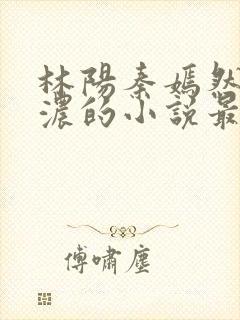 林陽秦嫣然
濃的小說最
傅嘯塵